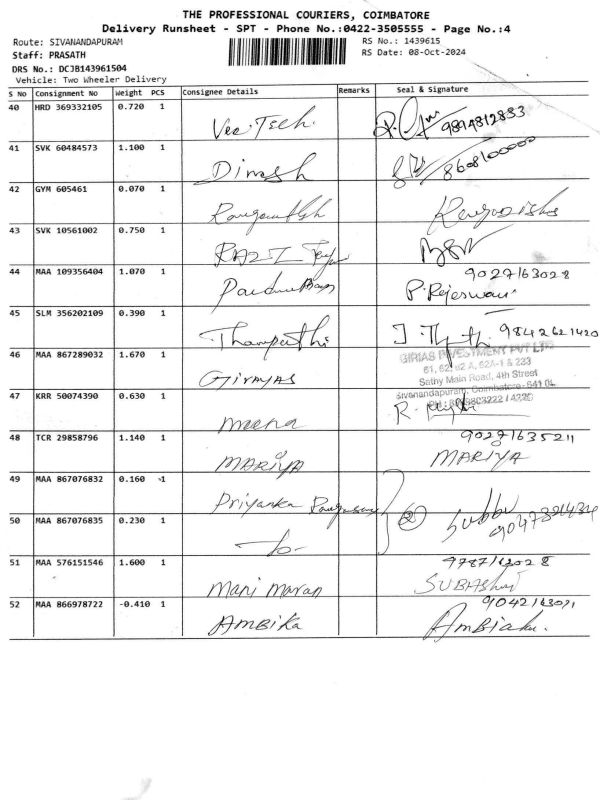 THE PROFESSIONAL COURIERS, COIMBATORE
Delivery Runsheet - SPT - Phone No.:0422-3505555 - Page No.:4
Route: SIVANANDAPURAM
RS No.: 1439615
Staff: PRASATH
RS Date: 08-Oct-2024
DRS No.: DCJB143961504
Vehicle: Two Wheeler Delivery
S No Consignment No Weight PCS Consignee Details Remarks Seal & Signature
40 HRD 369332105 0.720 1
Vee Tech. 9894812833
41 SVK 60484573 1.100 1
Dinesh 8608100000
42 GYM 605461 0.070 1
43 SVK 10561002 0.750 1
44 MAA 109356404 1.070 1 9027163028
P. Rajeswari
45 SLM 356202109 0.390 1
Thanpathi 9842621420
46 MAA 867289032 1.670 1 GIRIAS INVESTMENT PVT LTD
61, 62, 62 A, 62A-1 & 233
Sathy Main Road, 4th Street
Girayas Sivanandapuram, Coimbatore-641 0
47 KRR 50074390 0.630 1
meena
48 TCR 29858796 1.140 1 90271635211
MARIYA MARIYA
49 MAA 867076832 0.160 1
Priyanka
50 MAA 867076835 0.230 1 2 Subbu
51 MAA 576151546 1.600 1
Mani maran
52 MAA 866978722 -0.410 1
AMBIKA